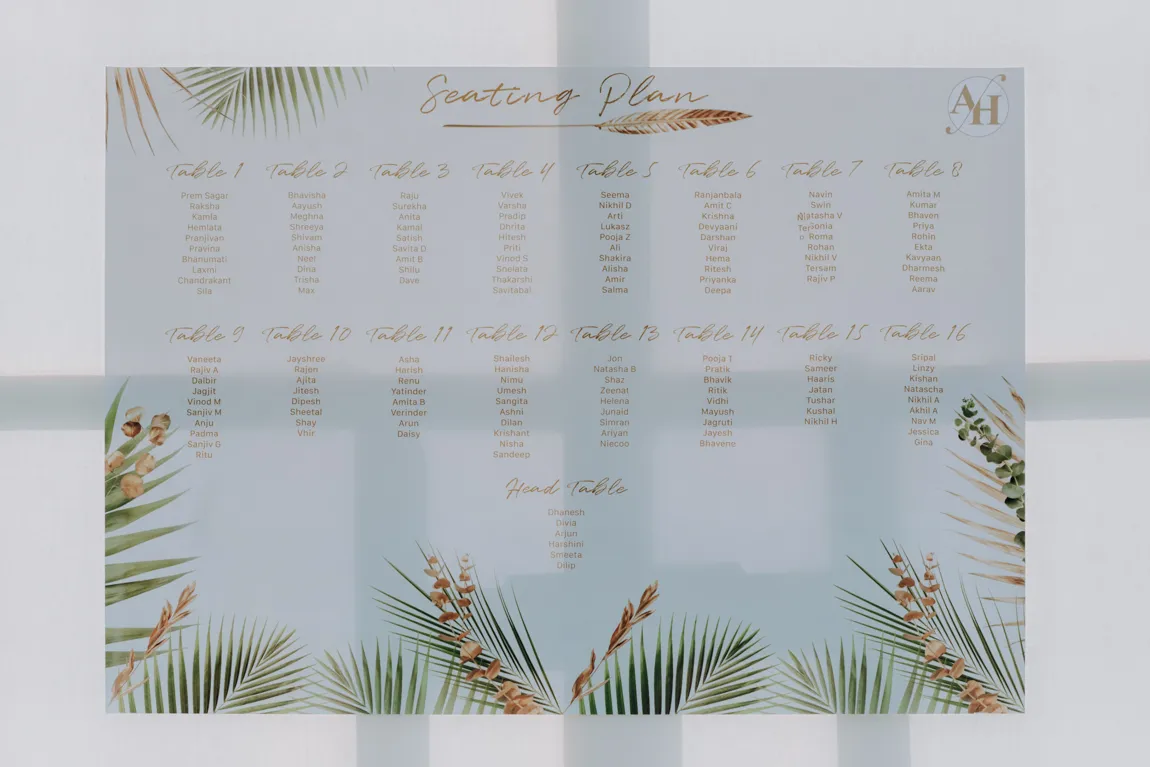 Seating Plan
AH
Table 1
Prem Sagar
Raksha
Kamla
Hemlata
Pranjivan
Pravina
Bhanumati
Laxmi
Chandrakant
Sila
Table 2
Bhavisha
Aayush
Meghna
Shreeya
Shivam
Anisha
Neet
Dina
Trisha
Max
Table 3
Raju
Surekha
Anita
Kamal
Satish
Savita D
Amit B
Shilu
Dave
Table 4
Vivek
Varsha
Pradip
Dhrita
Hitesh
Priti
Vinod S
Snelata
Thakarshi
Savitabai
Table 5
Seema
Nikhil D
Arti
Lukasz
Pooja Z
Ali
Shakira
Alisha
Amir
Salma
Table 6
Ranjanbala
Amit C
Krishna
Devyaani
Darshan
Viraj
Hema
Ritesh
Priyanka
Deepa
Table 7
Navin
Swin
Natasha V
Roma
Rohan
Nikhil V
Tersam
Rajiv P
Table 8
Amita M
Kumar
Bhaven
Priya
Rohin
Ekta
Kavyaan
Dharmesh
Reema
Aarav
Table 9
Vaneeta
Rajiv A
Dalbir
Jagjit
Vinod M
Sanjiv M
Anju
Padma
Sanjiv G
Ritu
Table 10
Jayshree
Rajen
Ajita
Jitesh
Dipesh
Sheetal
Shay
Vhir
Table 11
Asha
Harish
Renu
Yatinder
Amita B
Verinder
Arun
Daisy
Table 12
Shailesh
Hanisha
Nimu
Umesh
Sangita
Ashni
Dilan
Krishant
Nisha
Sandeep
Table 13
Jon
Natasha B
Shaz
Zeenat
Helena
Junaid
Simran
Ariyan
Niecoo
Table 14
Pooja T
Pratik
Bhavik
Ritik
Vidhi
Mayush
Jagruti
Jayesh
Bhavene
Table 15
Ricky
Sameer
Haaris
Jatan
Tushar
Kushal
Nikhil H
Table 16
Sripal
Linzy
Kishan
Natascha
Nikhil A
Akhil A
Nav M
Jessica
Gina
Head Table
Dhanesh
Divia
Arjun
Harshini
Smeeta
Dilip